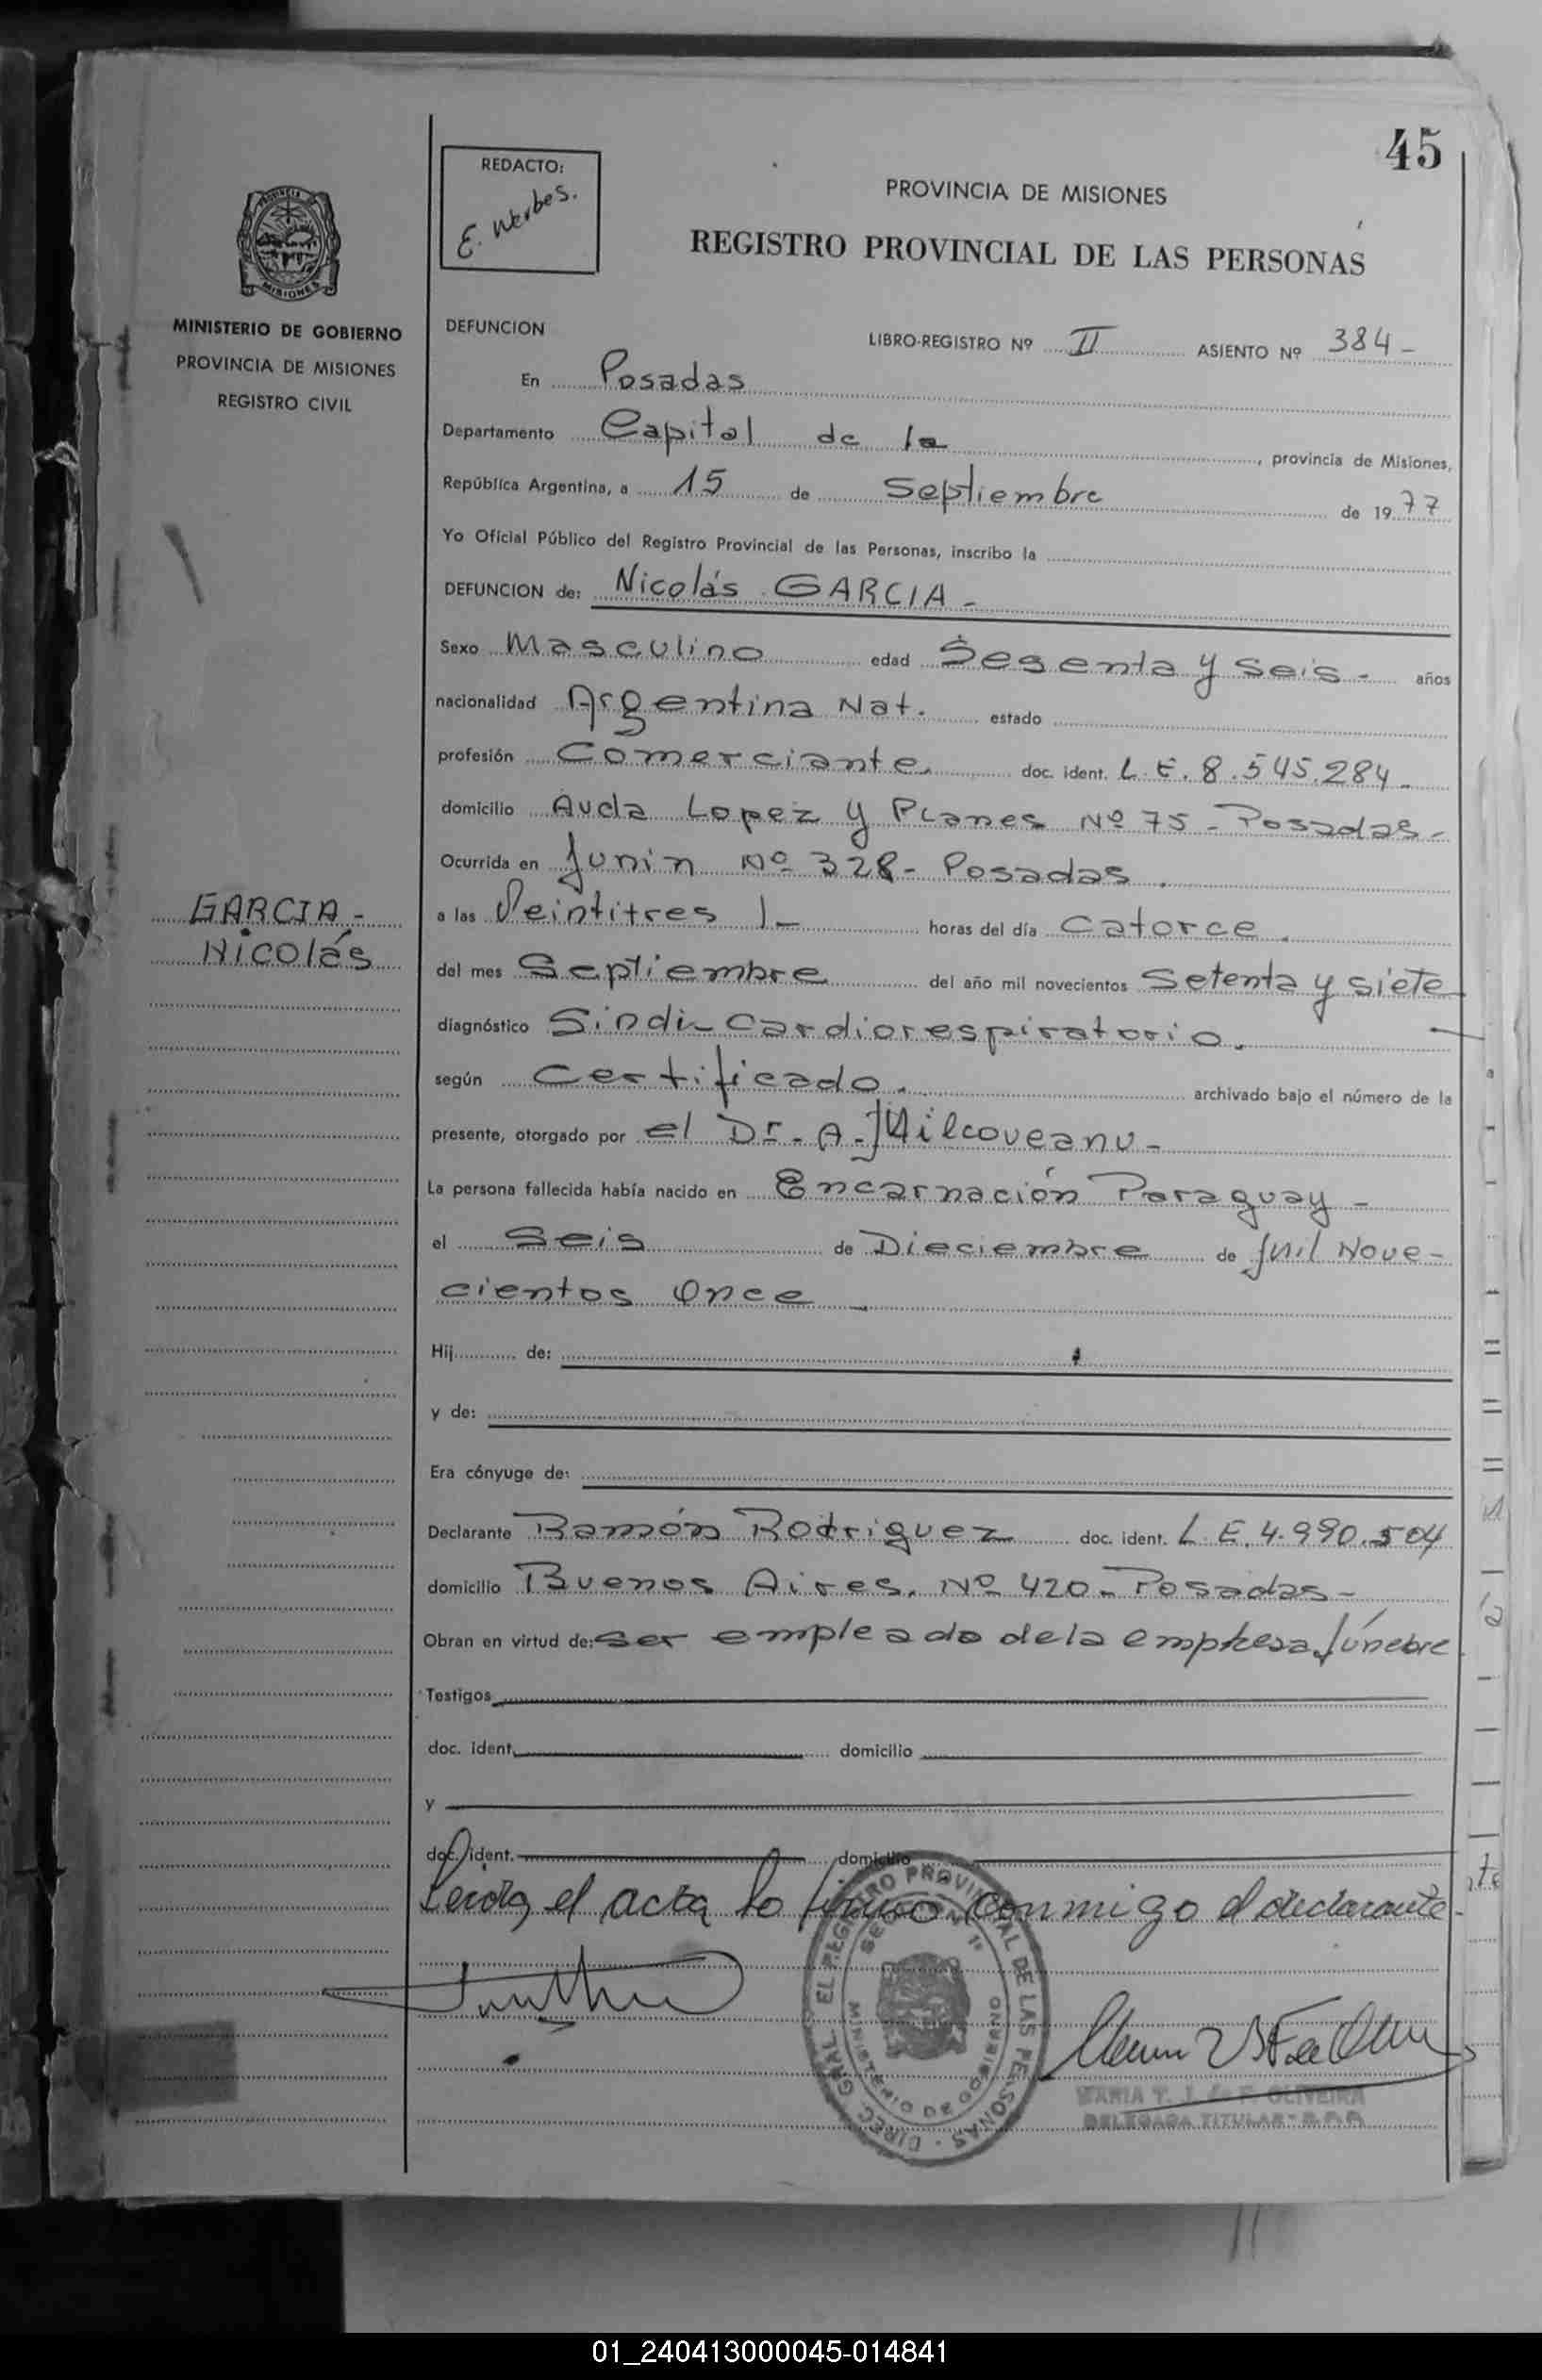 45
REDACTO:
E. Werbes.
PROVINCIA DE MISIONES
REGISTRO PROVINCIAL DE LAS PERSONAS
PROVINCIA DE
MISIONES
MINISTERIO DE GOBIERNO
PROVINCIA DE MISIONES
REGISTRO CIVIL
DEFUNCION
LIBRO-REGISTRO Nº II ASIENTO Nº 384-
En Posadas
Departamento Capital de la, provincia de Misiones,
República Argentina, a 15 de Septiembre de 1977
Yo Oficial Público del Registro Provincial de las Personas, inscribo la
DEFUNCION de: Nicolás GARCIA-
Sexo Masculino edad Sesenta y seis- años
nacionalidad Argentina Nat. estado
profesión Comerciante. doc. ident. L.E. 8.545.284-
domicilio Avda Lopez y Planes Nº 75 - Posadas-
Ocurrida en Junin Nº 328- Posadas.
GARCIA-
Nicolás
a las Veintitres 1- horas del día Catorce.
del mes Septiembre del año mil novecientos Setenta y siete
diagnóstico Sindi-Cardiorespiratorio.
según Certificado. archivado bajo el número de la
presente, otorgado por el Dr. A. Milcoveanu-
La persona fallecida había nacido en Encarnación Paraguay-
el Seis de Dieciembre de Mil Nove-
cientos Once-
Hij de:
y de:
Era cónyuge de:
Declarante Ramón Rodriguez doc. ident. L.E. 4.990.504
domicilio Buenos Aires. Nº 420- Posadas-
Obran en virtud de: ser empleado de la empresa fúnebre
Testigos
doc. ident. domicilio
y
doc. ident. domicilio
Leida el acta lo firmo conmigo el declarante-
DIREC. GRAL. EL REGISTRO PROVINCIAL DE LAS PERSONAS
MINISTERIO DE GOBIERNO
MARIA T. J. de F. OLIVEIRA
DELEGADA TITULAR
01_240413000045-014841